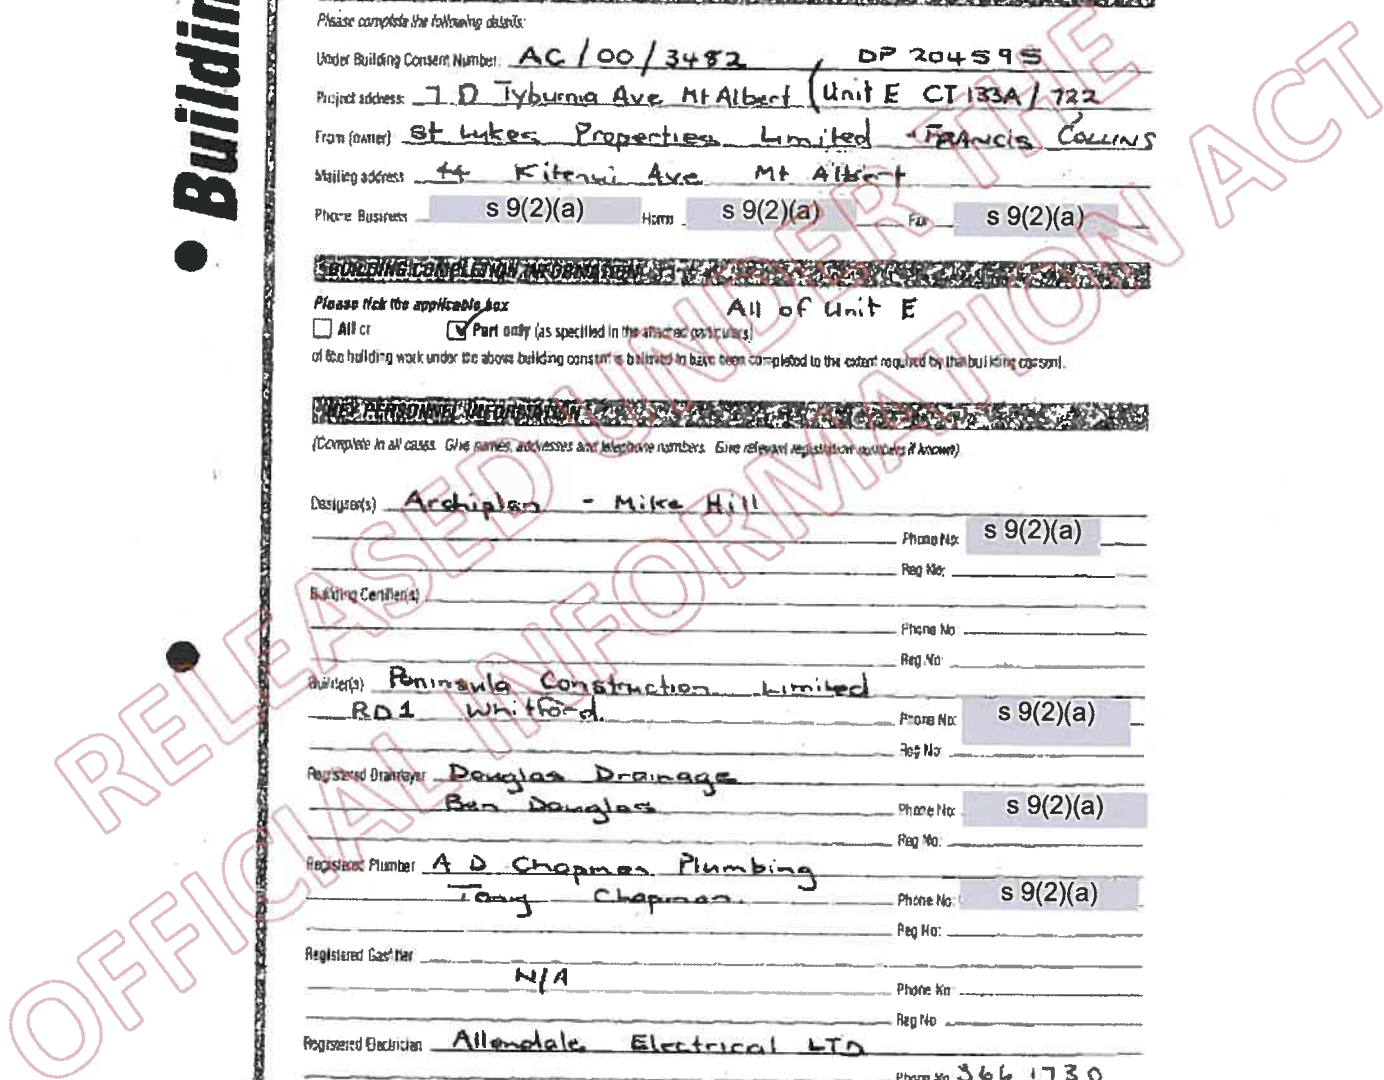 • Buildin
Please complete the following details:
Under Building Consent Number: AC/00/3482 DP 204595
Project address: 7 D Tyburnia Ave Mt Albert (Unit E CT 133A/722
From (owner) St Lukes Properties Limited - FRANCIS COLLINS
Mailing address 44 Kitenui Ave Mt Albert
Phone Business s 9(2)(a) Home s 9(2)(a) Fax s 9(2)(a)
BUILDING COMPLETION INFORMATION
Please tick the applicable box
All of Unit E
All or Part only (as specified in the attached particulars)
of the building work under the above building consent is believed to have been completed to the extent required by that building consent.
KEY PERSONNEL INFORMATION
(Complete in all cases. Give names, addresses and telephone numbers. Give relevant registration numbers if known)
Designer(s) Archiplan - Mike Hill
Phone No: s 9(2)(a)
Reg No:
Building Certifier(s)
Phone No
Reg No
Builder(s) Peninsula Construction Limited
RD1 Whitford. Phone No: s 9(2)(a)
Reg No
Registered Drainlayer Douglas Drainage
Ben Douglas Phone No: s 9(2)(a)
Reg No:
Registered Plumber A D Chapman Plumbing
Tony Chapman. Phone No: s 9(2)(a)
Reg No:
Registered Gasfitter
N/A Phone No
Reg No
Registered Electrician Allendale Electrical LTD
Phone No 366 1730
RELEASED UNDER THE
OFFICIAL INFORMATION ACT